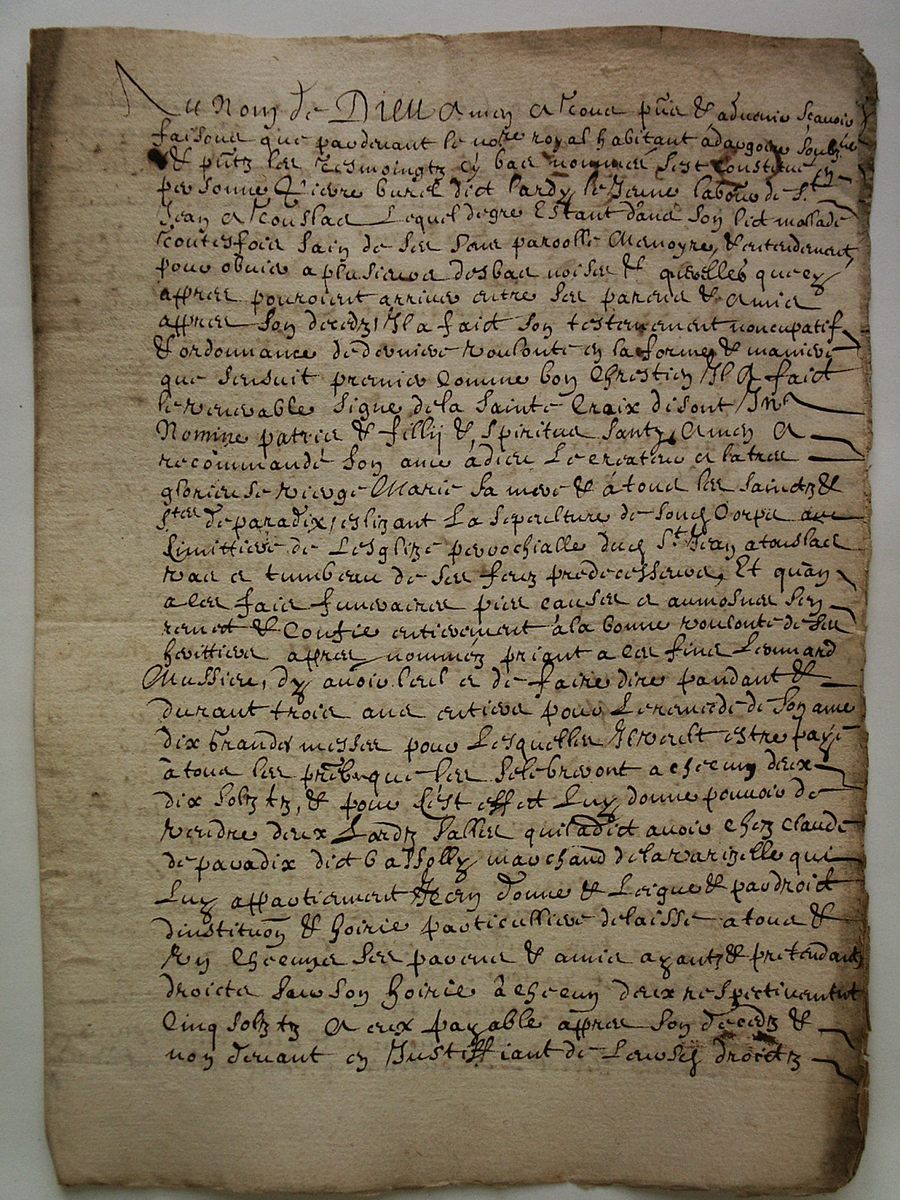 Au Nom de Dieu Amen A tous pns & advenir sçavoir
faisons que pardevant le nore royal habitant à dargoire soubzné
& pntz les tesmoingtz cy bas nommes sest constitué en
personne Pierre burel dict lardy le Jeune laboure de St
Jean a touslas Lequel de gre Estant dans son lict mallade
toutesfois sain de ses sens parolle memoyre, & entendement
pour obvier a plusieurs desbas noises & querelles que cy
appres pouroient arriver entre ses parens & amis
appres son decedz, Il a faict son testement noncupatif
& ordonnance de derniere voulonte en la forme & maniere
que sensuit premier Comme bon Chrestien Il A faict
le venerable signe de la sainte Croix disant In
Nomine patris & fillij & spiritus santy Amen A
recommandé son ame à dieu Le createur a la tres
glorieuse vierge Marie sa mere & à tous les sainctz &
Stes de paradix, eslizant La sepculture de sond Corps au
Simittiere de Lesglize perrochialle dud St Jean a touslas
vas & tumbeau de ses feuz predecesseurs, Et quan
a les fais funeraires pies causes & aumosnes sen
remet & Confie entierement à la bonne voulonte de ses
heritiers appres nommez priant a ces fins Leonnard
Mussieu, dy avoir lœil & de faire dire pandant &
durant trois ans entiers pour Le remede de son ame
dix Grandes messes pour Lesquelles Il veult estre payé
à tous les prebres que les selebreront a checung deux
dix solz tz, & pour cest effect Luy donne pouvoir de
vendre deux Lardz salles quil a dict avoir chez claude
de paradix dict bassolly marchand de la varizelle qui
Luy appartiennent Item donne & Legue & par droict
dinstitution & hoirie particulliere delaisse a tous &
un Checungs ses parens & amis ayantz & pretendantz
droicts sur son hoirie à checung deux respectivement
Cinq solz tz A eux payable appres son decedz &
non devant en Justiffiant de Leursd droictz